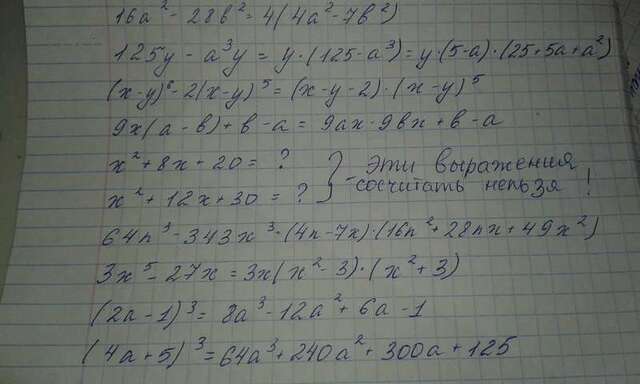 16a² - 28b² = 4(4a² - 7b²)
125y - a³y = y·(125 - a³) = y·(5-a)·(25+5a+a²)
(x-y)⁶ - 2(x-y)⁵ = (x-y-2)·(x-y)⁵
9x(a-b)+b-a = 9ax-9bx+b-a
x² + 8x - 20 = ? } Эти выражения
x² + 12x + 30 = ? сосчитать нельзя!
64n³ - 343x³ = (4n-7x)·(16n² + 28nx + 49x²)
3x⁵ - 27x = 3x(x² - 3)·(x² + 3)
(2a-1)³ = 8a³ - 12a² + 6a - 1
(4a+5)³ = 64a³ + 240a² + 300a + 125